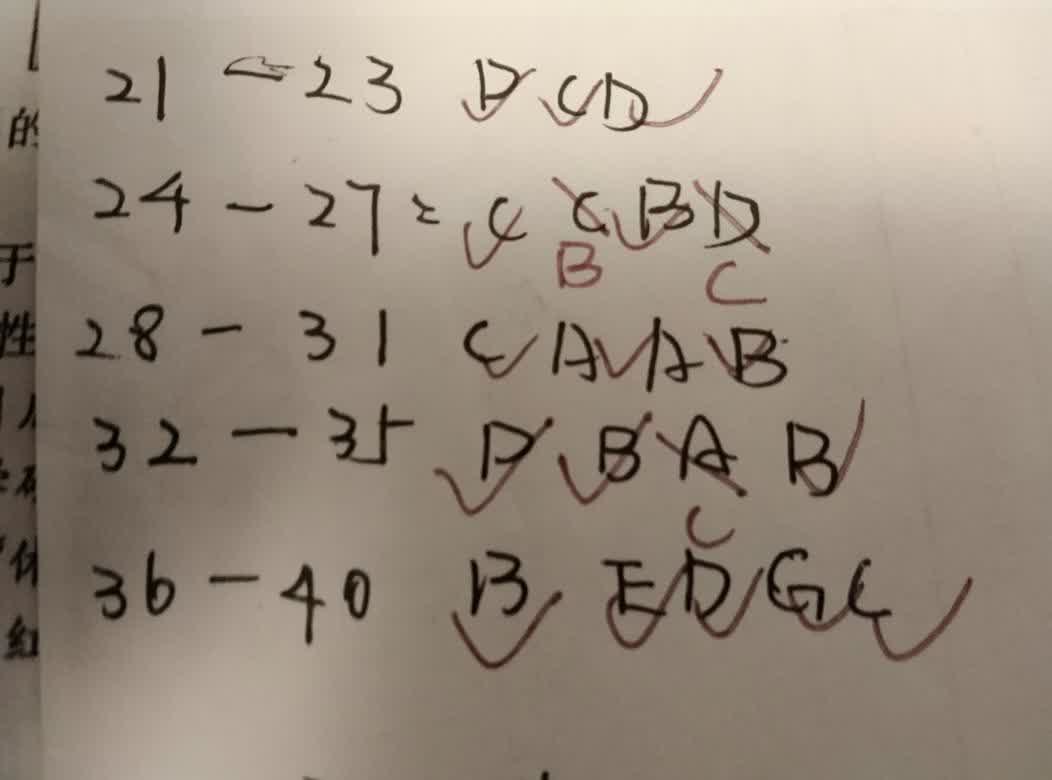 21 - 23 D C D
24 - 27: C C B D
B C
28 - 31 C A A B
32 - 35 D B A B
C
36 - 40 B E D G C
的
于
性
红